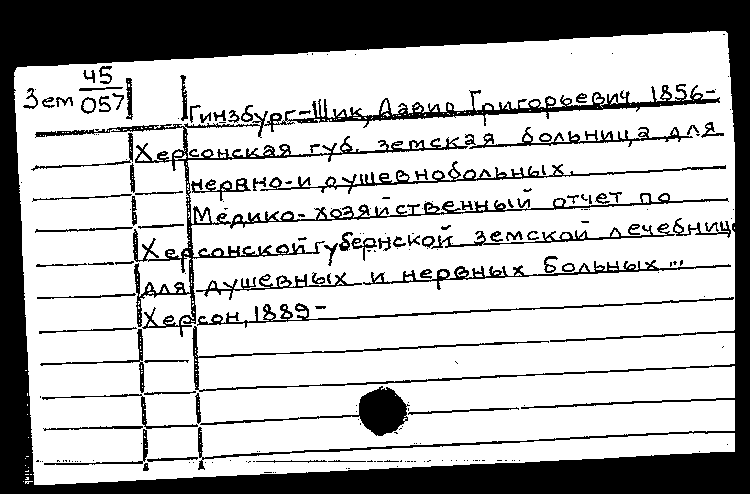 Зем 45/057
Гинзбург-Шик, Давид Григорьевич, 1856-
Херсонская губ. земская больница для
нервно- и душевнобольных.
Медико-хозяйственный отчет по
Херсонской губернской земской лечебнице
для душевных и нервных больных...
Херсон, 1889-